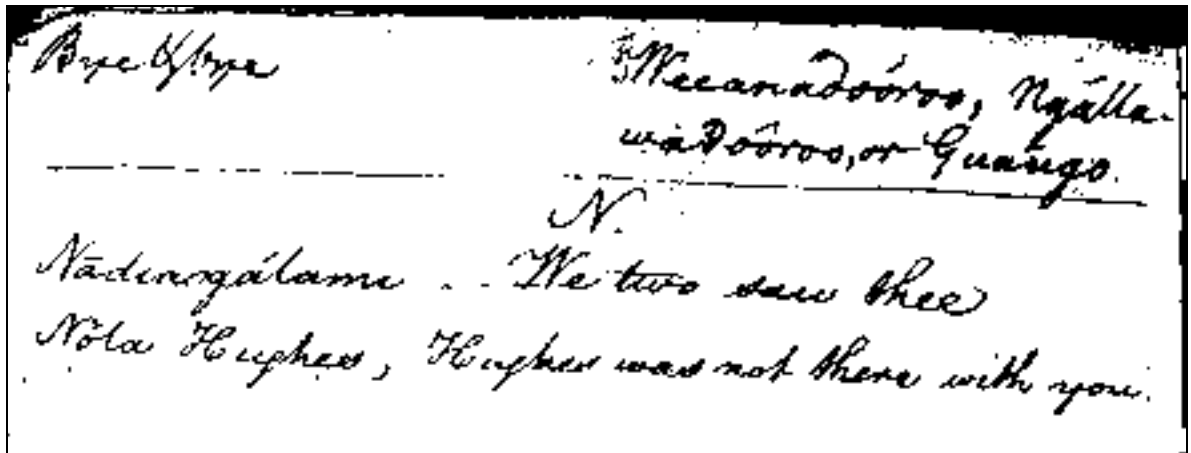 Bye & bye Weeanadoóroo, Ngálla-
wiadoóroo, or Guaúgo.
N.
Nādinngálami .. We two saw thee
Nóla Hughes, Hughes was not there with you.